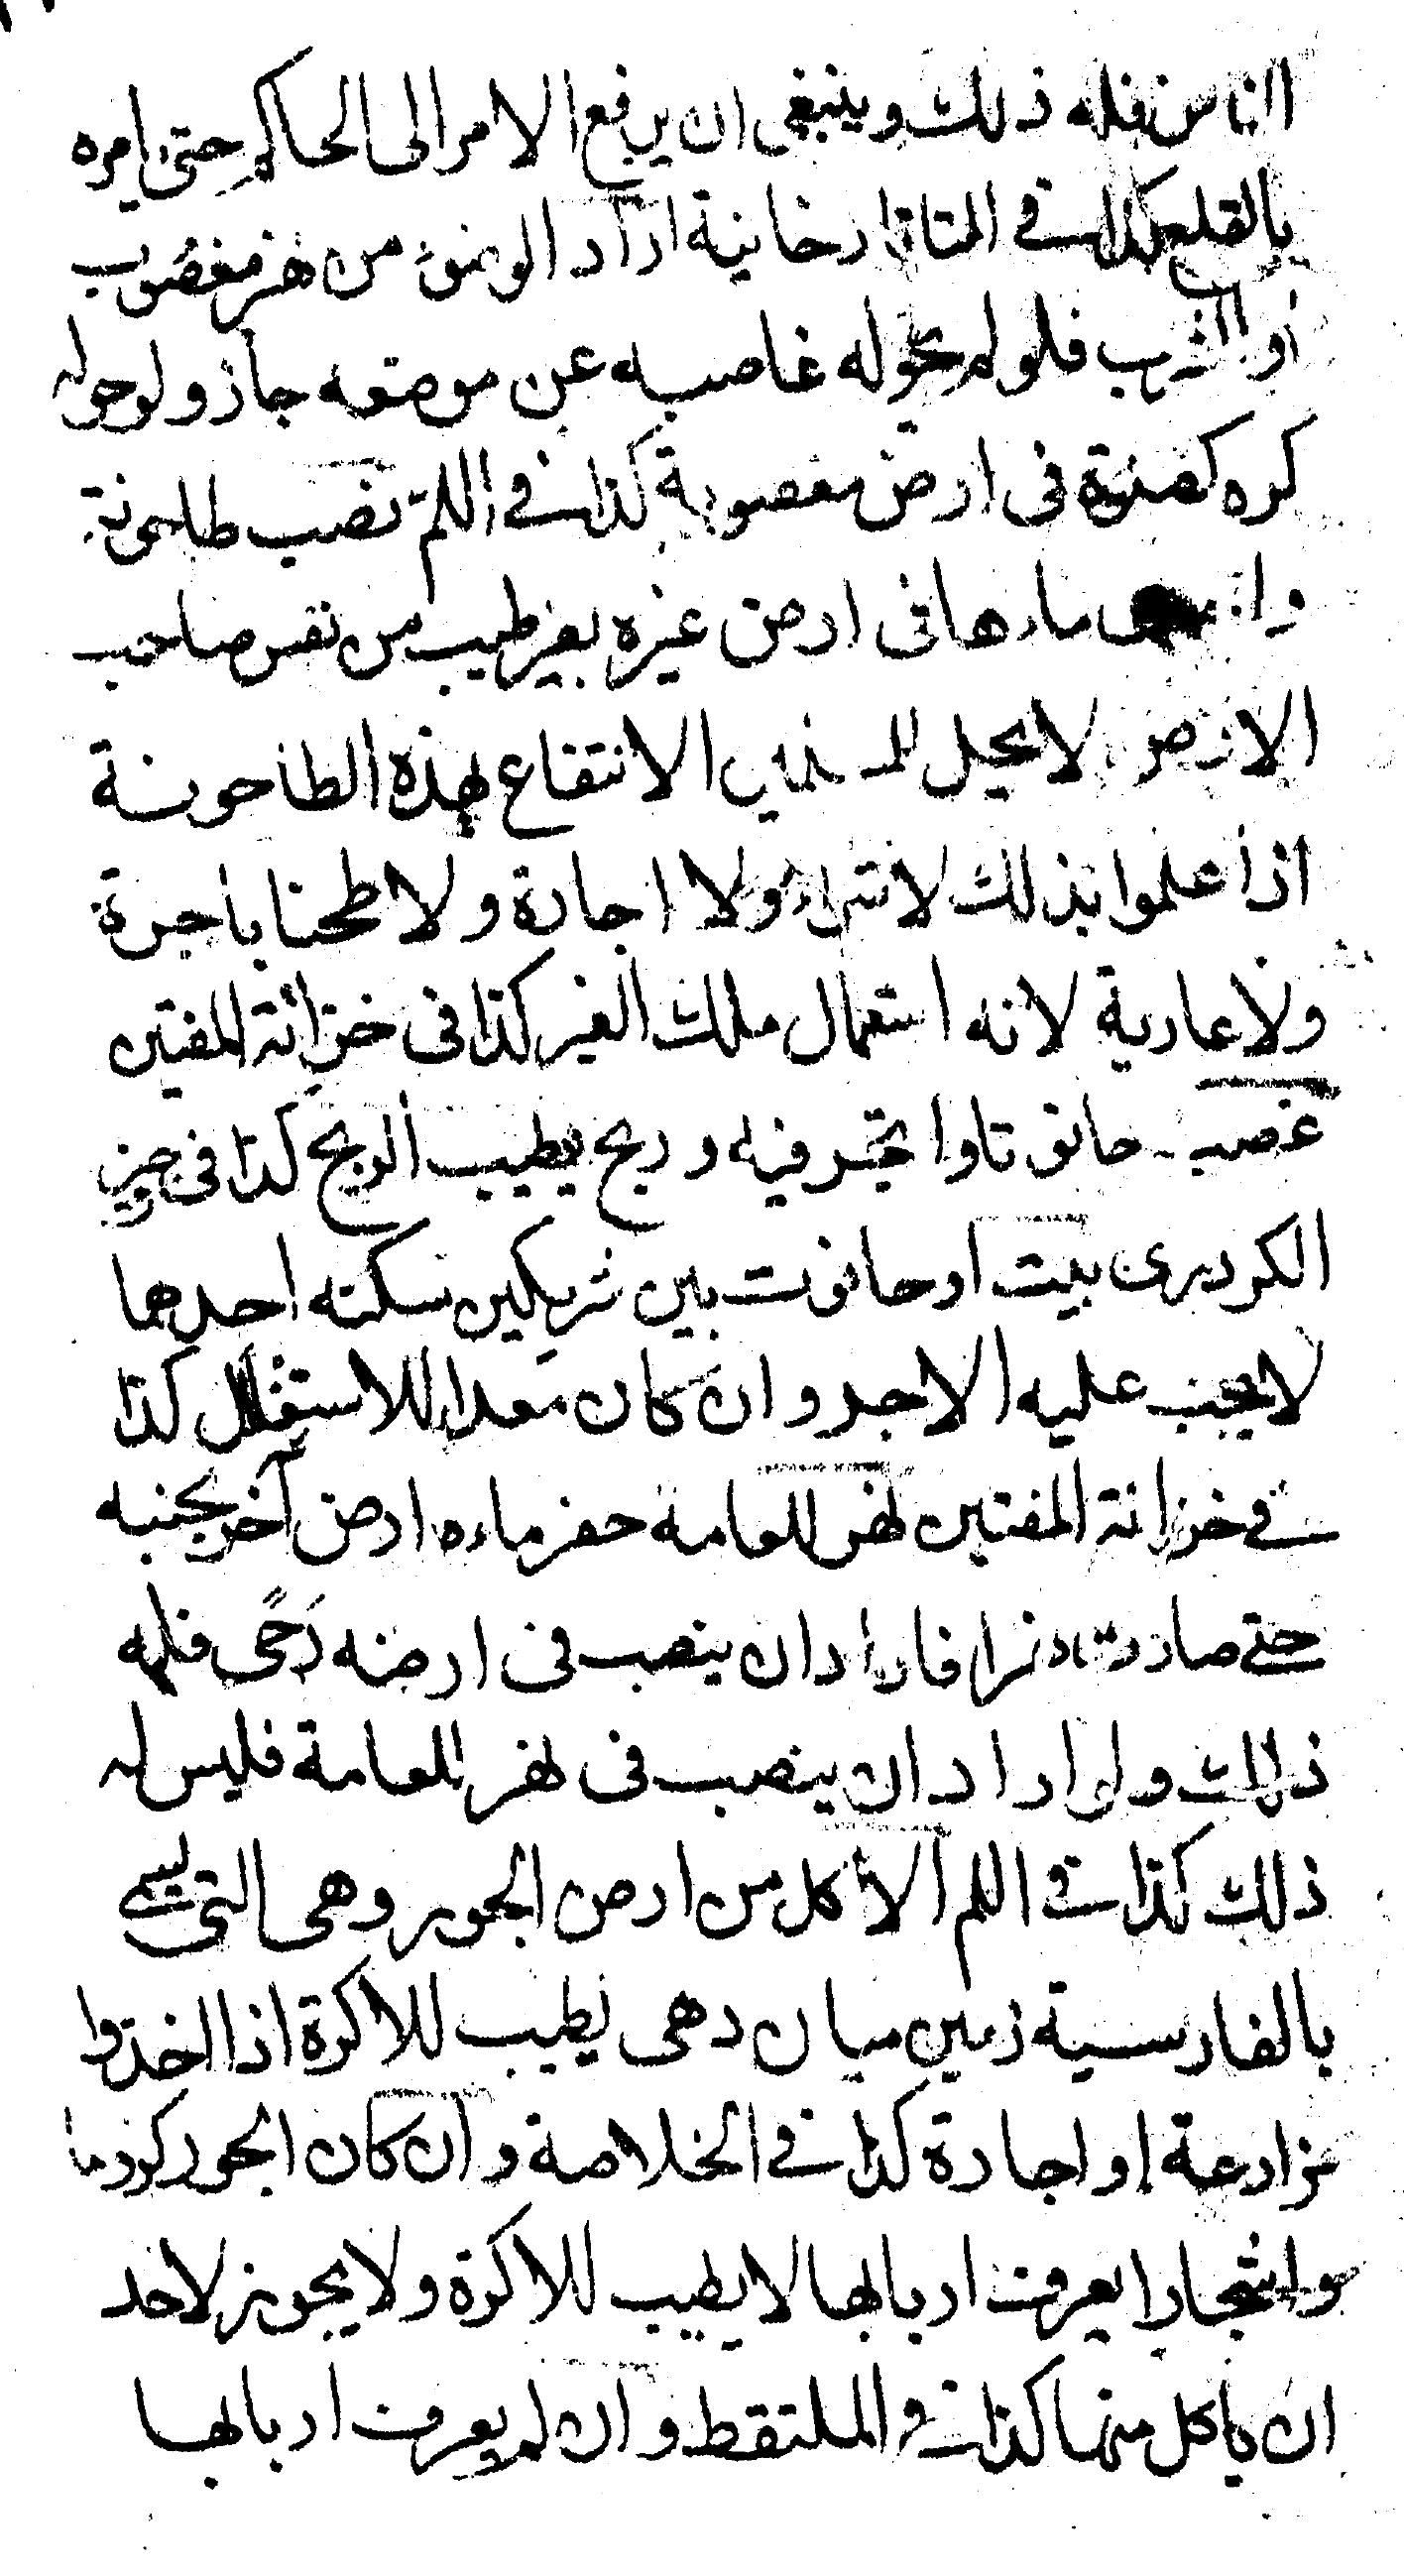 الناس فله ذلك وينبغى ان يرفع الامر الى الحاكم حتى يامره
بالقلع كذا في التتاتارخانية اراد الوضوء من نهر مغصوب
او الشرب فلو لم يحوله غاصبه عن موضعه جاز ولو حوله
كره كصلوة فى ارض مغصوبة كذا في اللم نصب طاحونة
ماءها فى ارض غيره بغير طيب من نفس صاحب
الارض لا يحل للمسلمين الانتفاع بهذه الطاحونة
اذا علموا بذلك لا شراء ولا اجارة ولا طحنا باجرة
ولا عارية لانه استعمال ملك الغير كذا فى خزانة المفتين
غصب حانوتا واتجر فيه وربح يطيب الربح كذا فى وجيز
الكردرى بيت او حانوت بين شريكين سكنه احدهما
لا يجب عليه الاجر وان كان معدا للاستغلال كذا
في خزانة المفتين نهر للعامة حفر ماءه ارض آخر بجنبه
حتى صارت نهرا فاراد ان ينصب فى ارضه رحًى فله
ذلك ولو اراد ان ينصب فى نهر للعامة فليس له
ذلك كذا في اللم الاكل من ارض الجور وهى التى تسمى
بالفارسية زمين ميان دهى يطيب للاكرة اذا اخذوا
مزارعة او اجارة كذا في الخلاصة وان كان الجور كروما
واشجارا يعرف اربابها لا يطيب للاكرة ولا يجوز لاحد
ان ياكل منها كذا في الملتقط وان لم يعرف اربابها